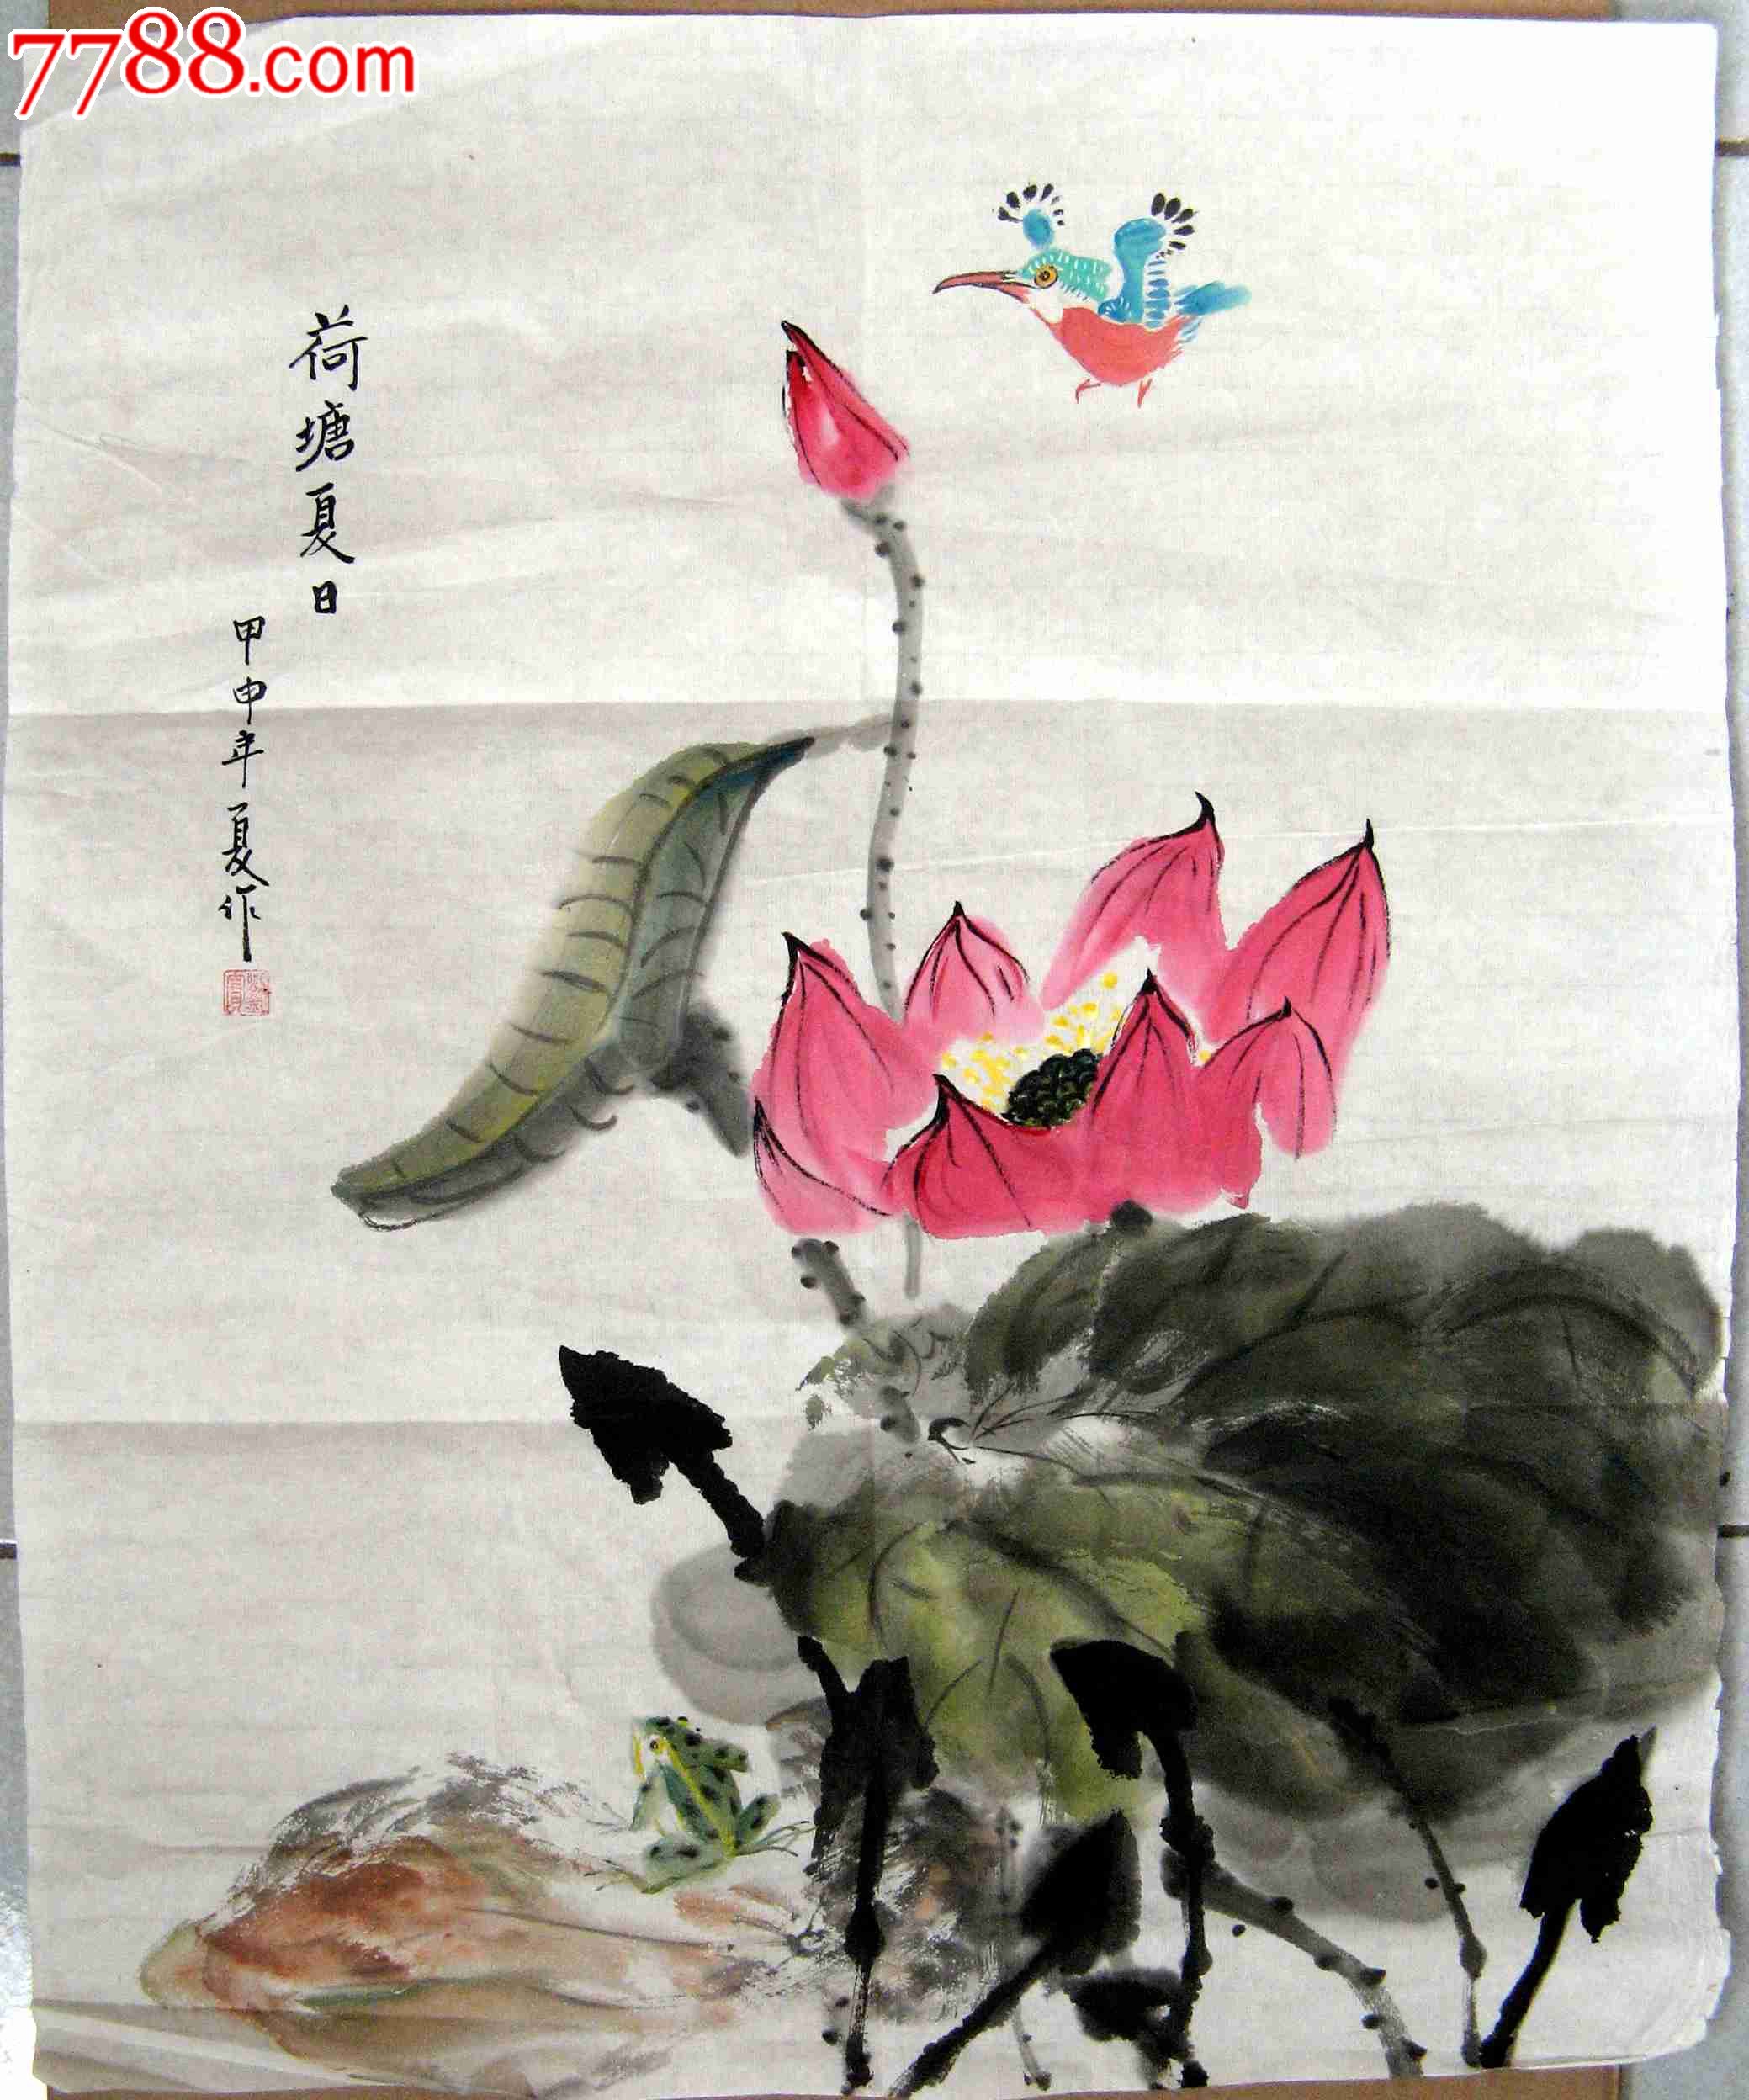 7788.com
荷塘夏日
甲申年夏作